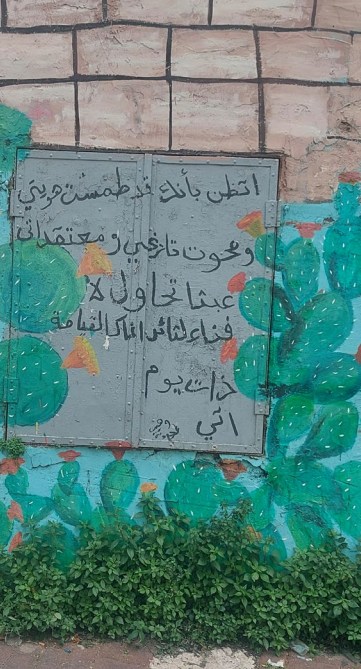 اتظن بأنك قد طمست هويتي
ومحوت تاريخي ومعتقداتي
عبثا تحاول لا
فناء لثائر انا كالقيامة
ذات يوم
اتي